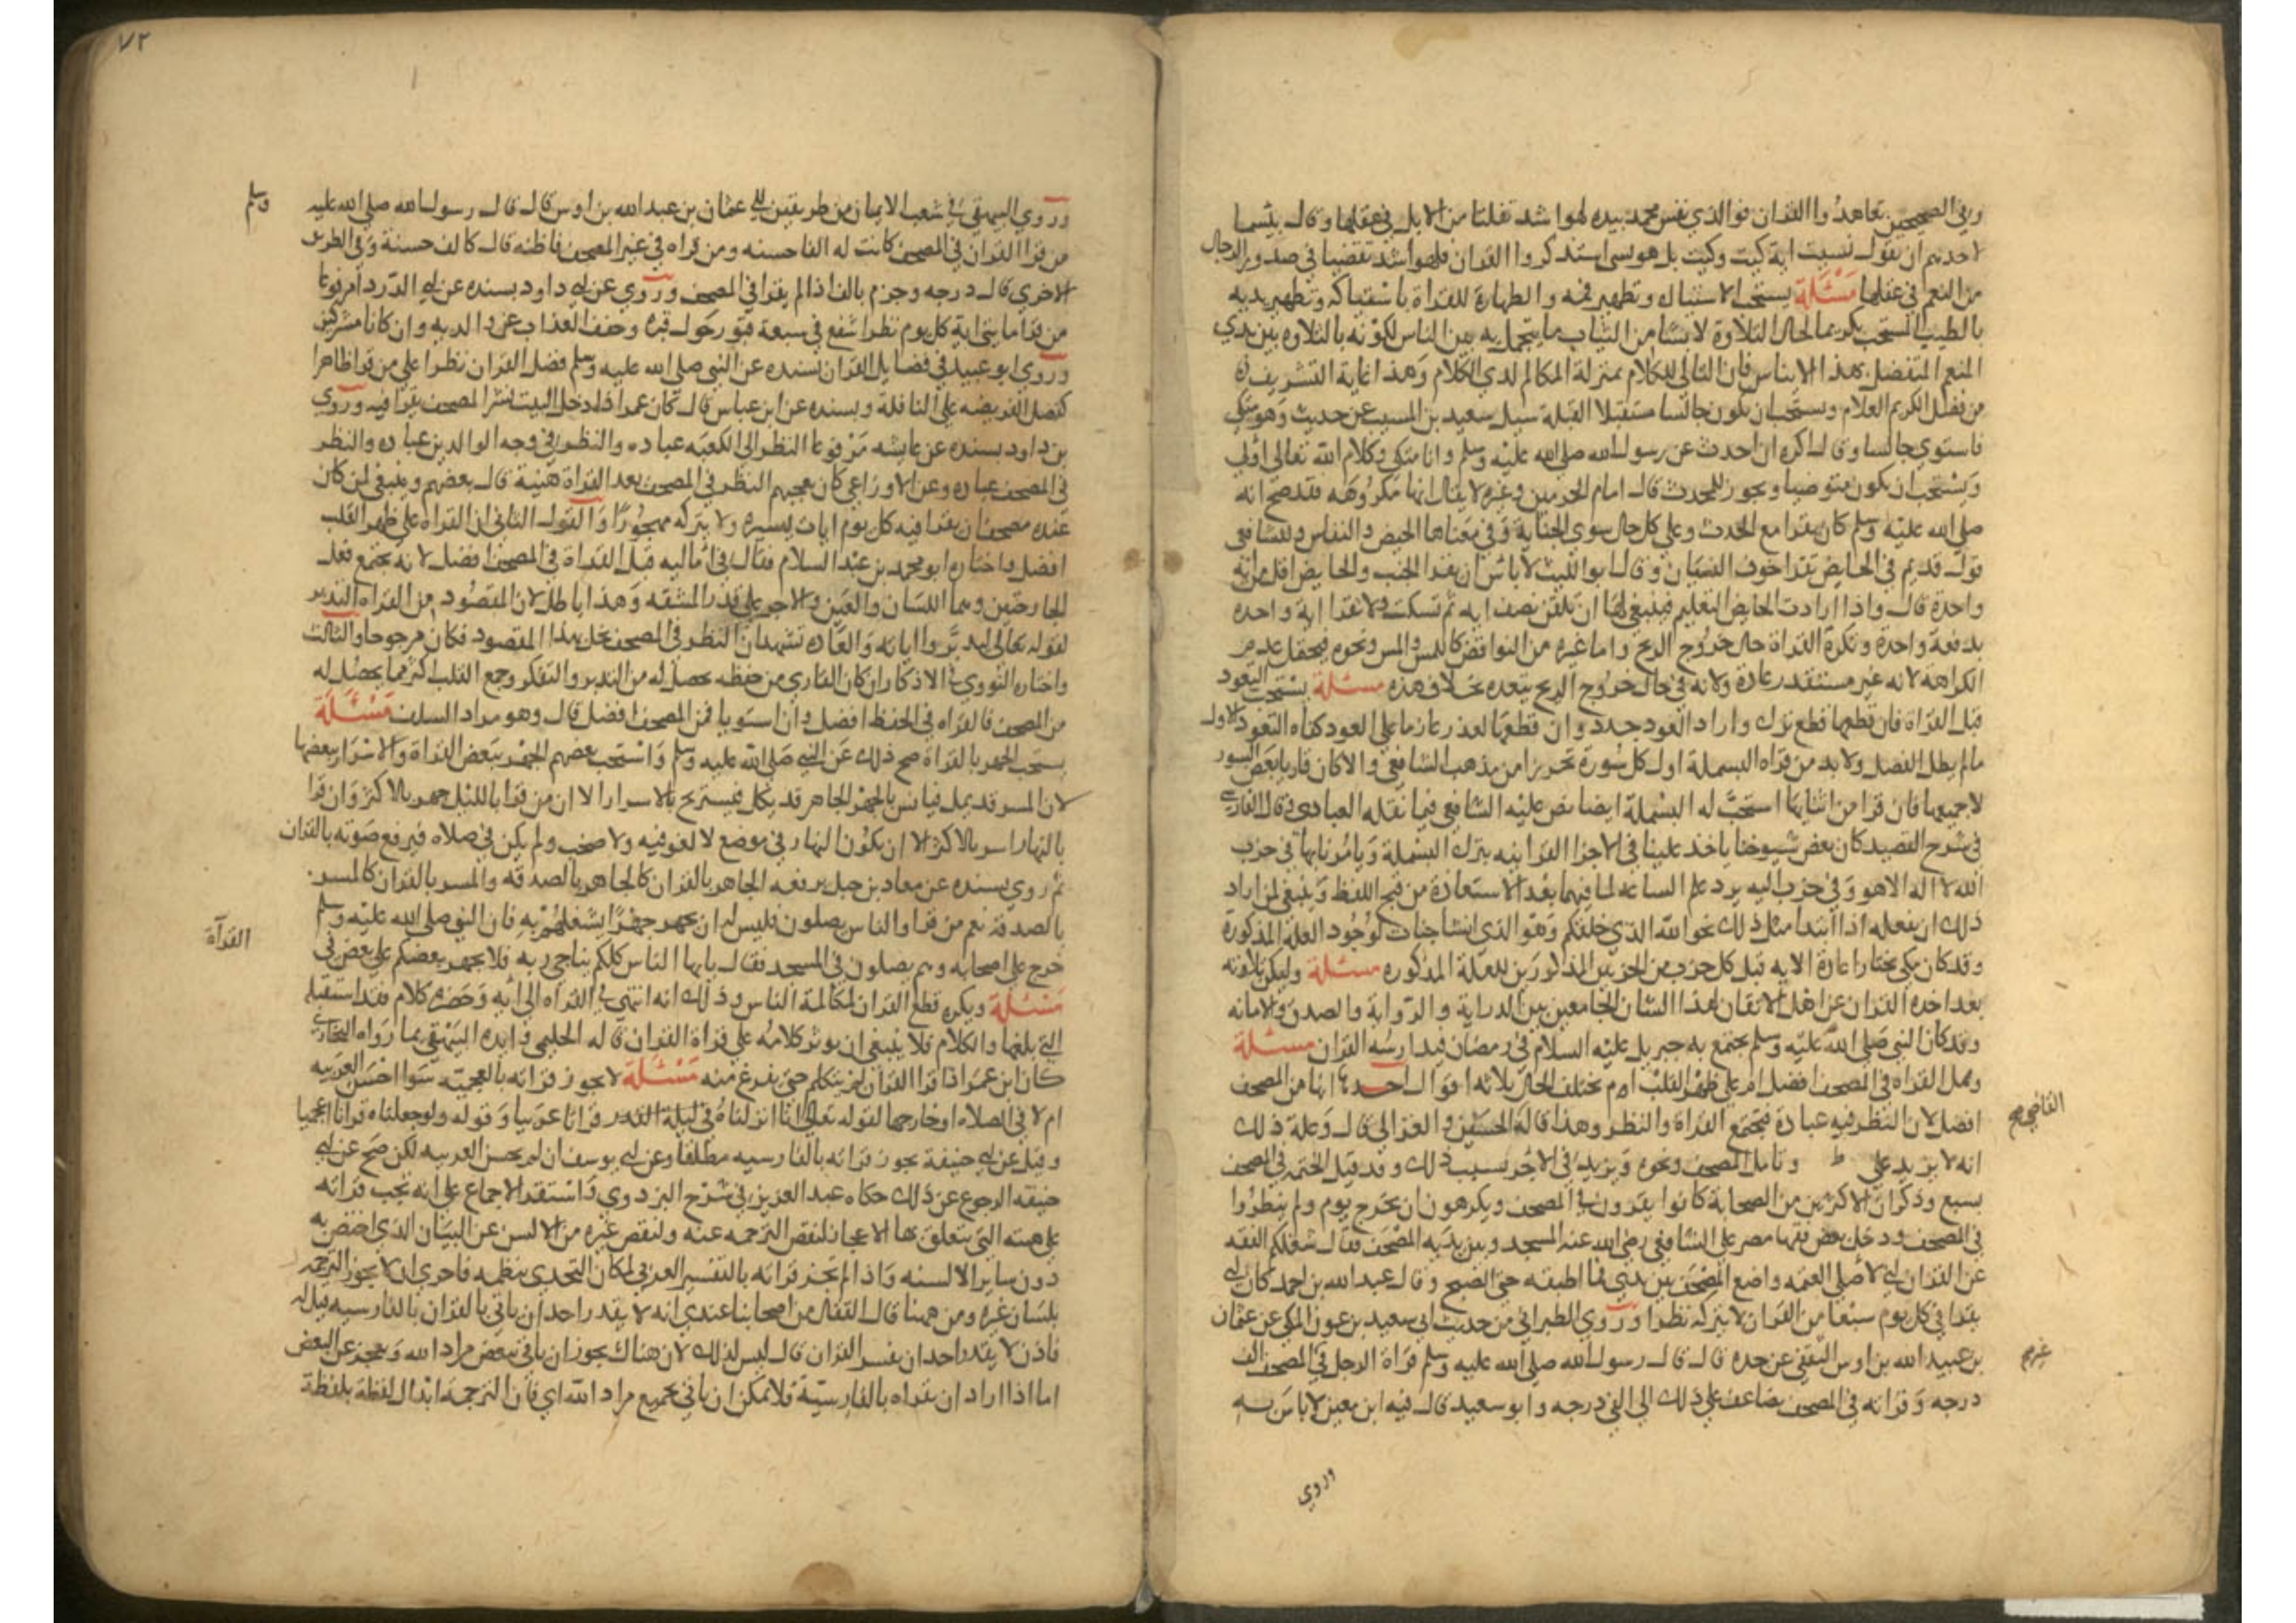 وفي الصحيحين تعاهدوا القران فوالذي نفس محمد بيده لهو اشد تفلتا من الابل في عقلها وقال بئسما
لاحدهم ان يقول نسيت اية كيت وكيت بل هو نسي استذكروا القران فلهو اشد تفصيا في صدور الرجال
من النعم في عقلها مسئلة يستحب الاستياك وتطهير فمه والطهارة للقراة باستياكه وتطهير بدنه
بالطيب المستحب تكريما لحال التلاوة لابسا من الثياب ما يتجمل به بين الناس لكونه بالتلاوه بين يدي
المنعم المتفضل بهذا الايناس فان التالي للكلام بمنزلة المكالم لذي الكلام وهذا غاية التشريف
من فضل الكريم العلام ويستحب ان يكون جالسا مستقبلا القبلة سيل سعيد بن المسيب عن حديث وهو متكي
فاستوي جالسا وقال اكره ان احدث عن رسول الله صلى الله عليه وسلم وانا متكي وكلام الله تعالى اولي
ويستحب ان يكون متوضيا ويجوز للمحدث قال امام الحرمين وغيره لا يقال انها مكروهه فقد صح انه
صلى الله عليه وسلم كان يقرا مع الحدث وعلى كل حال سوى الجنابة وفي معناها الحيض والنفاس وللشافعي
قول قديم في الحايض تقرا خوف النسيان وقال ابو الليث لا باس ان يقرا الجنب والحايض اقل من اية
واحدة قال واذا ارادت الحايض التعليم فينبغي لها ان تلقن نصف ايه ثم تسكت ولا تقرا اية واحده
بدفعة واحدة وتكره القراة حال خروج الريح واما غيره من النواقض كاللمس والمس ونحوه فيحتمل عدم
الكراهة لانه غير مستقذر عادة ولانه في حال خروج الريح يبعده بخلاف هذه مسئلة يستحب التعوذ
قبل القراة فان قطعها قطع ترك واراد العود جدد وان قطعها لعذر عازما على العود كفاه التعوذ الاول
مالم يطل الفصل ولا بد من قراه البسملة اول كل سورة تحرزا من مذهب الشافعي والا كان قاريا بعض السور
لا جميعها فان قرا من اثنايها استحب له البسملة ايضا نص عليه الشافعي فيما نقله العبادي وقال الفارسي
في شرح القصيد كان بعض شيوخنا ياخذ علينا في الاجزا القرانيه بترك البسملة ويامرنا بها في حزب
الله لا اله الا هو وفي حزب اليه يرد علم الساعه لما فيهما بعد الاستعاذة من قبح اللفظ وينبغي لمن اراد
ذلك ان يفعله اذا ابتدا مثل ذلك نحو الله الذي خلقكم وهو الذي انشا جنات لوجود العلة المذكورة
وقد كان مكي يختار اعادة الايه قبل كل حزب من الحزبين المذكورين للعلة المذكوره مسئلة وليكن تلاوته
بعد اخذه القران عن اهل الاتقان لهذا الشان الجامعين بين الدراية والرواية والصدق والامانه
وقد كان النبي صلى الله عليه وسلم يجتمع به جبريل عليه السلام في رمضان فيدارسه القران مسئلة
وهل القراه في المصحف افضل ام على ظهر القلب ام يختلف الحال ثلاثة اقوال احدها انها من المصحف
افضل لان النظر فيه عبادة فتجتمع القراة والنظر وهذا قاله الحسين والغزالي قال وعلة ذلك
القاضي صح
انه لا يزيد على ط وتامل المصحف ونحوه ويزيد في الاجر بسبب ذلك وقد قيل الختم في المصحف
بسبع وذكر ان الاكثرين من الصحابة كانوا يقرون في المصحف ويكرهون ان يخرج يوم ولم ينظروا
في المصحف ودخل بعض فقها مصر على الشافعي رضي الله عنه المسجد وبين يديه المصحف فقال شغلكم الفقه
عن القران اني لاصلي العتمه واضع المصحف بين يدي فما اطبقه حتى الصبح وقال عبد الله بن احمد كان ابي
يقرا في كل يوم سبعا من القران لا يتركه نظرا وروي الطبراني من حديث ابي سعيد بن عون المكي عن عثمان
بن عبيد الله بن اوس الثقفي عن جده قال قال رسول الله صلى الله عليه وسلم قراة الرجل في المصحف الف
درجه وقرانه في المصحف يضاعف على ذلك الى الفي درجه وابو سعيد قال فيه ابن معين لا باس به
وروي
٧٢
وروي البيهقي في شعب الايمان من طريقين الى عثمان بن عبد الله بن اوس قال قال رسول الله صلى الله عليه
وسلم
من قرا القران في المصحف كانت له الفا حسنه ومن قراه في غير المصحف فاظنه قال كالف حسنة وفي الطريق
الاخري قال درجه وجزم بالف اذا لم يقرا في المصحف وروي عن ابي داود بسنده عن ابي الدردا مرفوعا
من قرا مايتي اية كل يوم نظرا شفع في سبعة قبور حول قبره وخفف العذاب عن والديه وان كانا مشركين
وروي ابو عبيد في فضايل القران بسنده عن النبي صلى الله عليه وسلم فضل القران نظرا على من قرا ظاهرا
كفضل الفريضه على النافلة وبسنده عن ابن عباس قال كان عمر اذا دخل البيت نشر المصحف يقرا فيه وروي
بن داود بسنده عن عايشه مرفوعا النظر الى الكعبه عباده والنظر في وجه الوالدين عباده والنظر
في المصحف عباده وعن الاوزاعي كان يعجبهم النظر في المصحف بعد القراة هنية قال بعضهم وينبغي لمن كان
عنده مصحف ان يقرا فيه كل يوم ايات يسيره ولا يتركه مهجورا والقول الثاني ان القراه على ظهر القلب
افضل واختاره ابو محمد بن عبد السلام فقال في اماليه قيل القراة في المصحف افضل لانه يجمع فعل
الجارحتين وهما اللسان والعين والاجر على قدر المشقه وهذا باطل لان المقصود من القراه التدبر
لقوله تعالى ليدبروا اياته والعاده تشهد ان النظر في المصحف يخل بهذا المقصود فكان مرجوحا والثالث
واختاره النووي في الاذكار ان كان القاري من حفظه يحصل له من التدبر والتفكر وجمع القلب اكثر مما يحصل له
من المصحف فالقراه في الحفظ افضل وان استويا فمن المصحف افضل قال وهو مراد السلف مسئلة
يستحب الجهر بالقراة صح ذلك عن النبي صلى الله عليه وسلم واستحب بعضهم الجهر ببعض القراة والاسرار ببعضها
لان المسر قد يمل فيانس بالجهر والجاهر قد يكل فيستريح بالاسرار الا ان من قرا بالليل جهر بالاكثر وان قرا
بالنهار اسر بالاكثر الا ان يكون النهار في موضع لا لغو فيه ولا صخب ولم يكن في صلاه فيرفع صوته بالقران
ثم روي بسنده عن معاد بن جبل يرفعه الجاهر بالقران كالجاهر بالصدقه والمسر بالقران كالمسر
بالصدقة نعم من قرا والناس يصلون فليس له ان يجهر جهرا يشغلهم به فان النبي صلى الله عليه وسلم
خرج على اصحابه وهم يصلون في المسجد فقال يا يها الناس كلكم يناجي ربه فلا يجهر بعضكم على بعض في
القرآة
مسئلة ويكره قطع القران لمكالمة الناس وذلك انه انتهي في القراه الى ايه وحضره كلام فقد استقبله
التي بلغها والكلام فلا ينبغي ان يوثر كلامه على قراة القران قاله الحليمي وايده البيهقي بما رواه البخاري
كان ابن عمر اذا قرا القران لم يتكلم حتى يفرغ منه مسئلة لا يجوز قرانه بالعجميه سوا احسن العربيه
ام لا في الصلاه او خارجها لقوله تعالى انا انزلناه في ليلة القدر قرانا عربيا وقوله ولو جعلناه قرانا اعجميا
وقيل عن ابي حنيفة يجوز قرانه بالفارسيه مطلقا وعن ابي يوسف ان لم يحسن العربيه لكن صح عن ابي
حنيفه الرجوع عن ذلك حكاه عبد العزيز في شرح البزدوي واستقر الاجماع على انه تجب قرانه
على هيئته التي يتعلق بها الاعجاز لنقص الترجمه عنه ولنقص غيره من الالسن عن البيان الذي اختص به
دون ساير الالسنه واذا لم تجز قرانه بالتفسير العربي لمكان التحدي بنظمه فاحري ان لا يجوز الترجمه
بلسان غيره ومن ههنا قال القفال من اصحابنا عندي انه لا يقدر احد ان ياتي بالقران بالفارسيه قيل له
فاذن لا يقدر احد ان يفسر القران قال ليس لذلك لان هناك يجوز ان ياتي ببعض مراد الله ويعجز عن البعض
اما اذا اراد ان يقراه بالفارسية فلا يمكن ان ياتي بجميع مراد الله اي فان الترجمة ابدال لفظة بلفظة